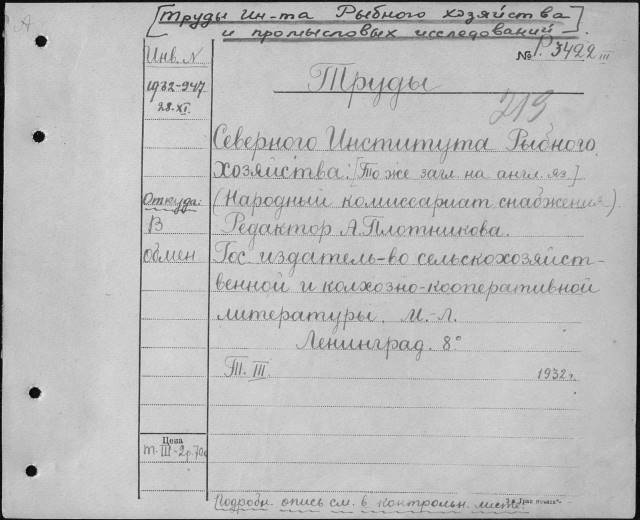 [Труды Ин-та Рыбного хозяйства
и промысловых исследований].
Инв. N
№ Р. 3422 III
1932-947
28.XI.
Труды
219
Северного Института Рыбного
хозяйства: [То же загл. на англ. яз.]
Откуда:
(Народный комиссариат снабжения).
В
Редактор А. Плотникова.
обмен
Гос. издатель-во сельскохозяйст-
венной и колхозно-кооперативной
литературы. М.-Л.
Ленинград. 8°
Т. III.
1932 г.
Цена
т. III-2р.70к
Подробн. опись см. в контрольн. листе.